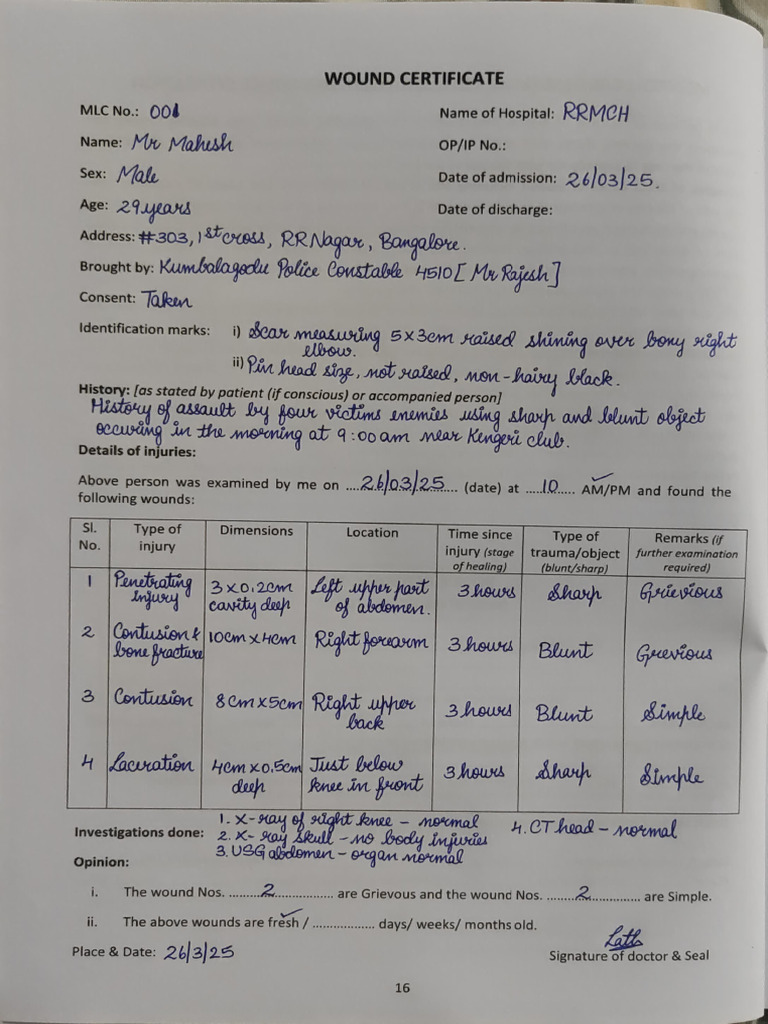 WOUND CERTIFICATE
MLC No.: 001
Name of Hospital: RRMCH
Name: Mr Mahesh
OP/IP No.:
Sex: Male
Date of admission: 26/03/25.
Age: 29 years
Date of discharge:
Address: #303, 1st cross, RR Nagar, Bangalore.
Brought by: Kumbalagodu Police Constable 4510 [Mr Rajesh]
Consent: Taken
Identification marks: i) Scar measuring 5x3cm raised shining over bony right
elbow.
ii) Pin head size, not raised, non-hairy black.
History: [as stated by patient (if conscious) or accompanied person]
History of assault by four victims enemies using sharp and blunt object
occuring in the morning at 9:00 am near Kengeri club.
Details of injuries:
Above person was examined by me on ....26/03/25..... (date) at .....10..... AM/PM and found the
following wounds:
Sl. No. Type of injury Dimensions Location Time since injury (stage of healing) Type of trauma/object (blunt/sharp) Remarks (if further examination required)
1 Penetrating Injury 3x0.2cm cavity deep Left upper part of abdomen. 3 hours Sharp Grievious
2 Contusion & bone fracture 10cm x 4cm Right forearm 3 hours Blunt Grevious
3 Contusion 8cm x 5cm Right upper back 3 hours Blunt Simple
4 Laceration 4cm x 0.5cm deep Just below knee in front 3 hours Sharp Simple
Investigations done: 1. X-ray of right knee - normal
2. X-ray skull - no body injuries
3. USG abdomen - organ normal
4. CT head - normal
Opinion:
i. The wound Nos. .........2................... are Grievous and the wound Nos. ........2.............. are Simple.
ii. The above wounds are fresh / .................. days/ weeks/ months old.
Place & Date: 26/3/25
Signature of doctor & Seal
16